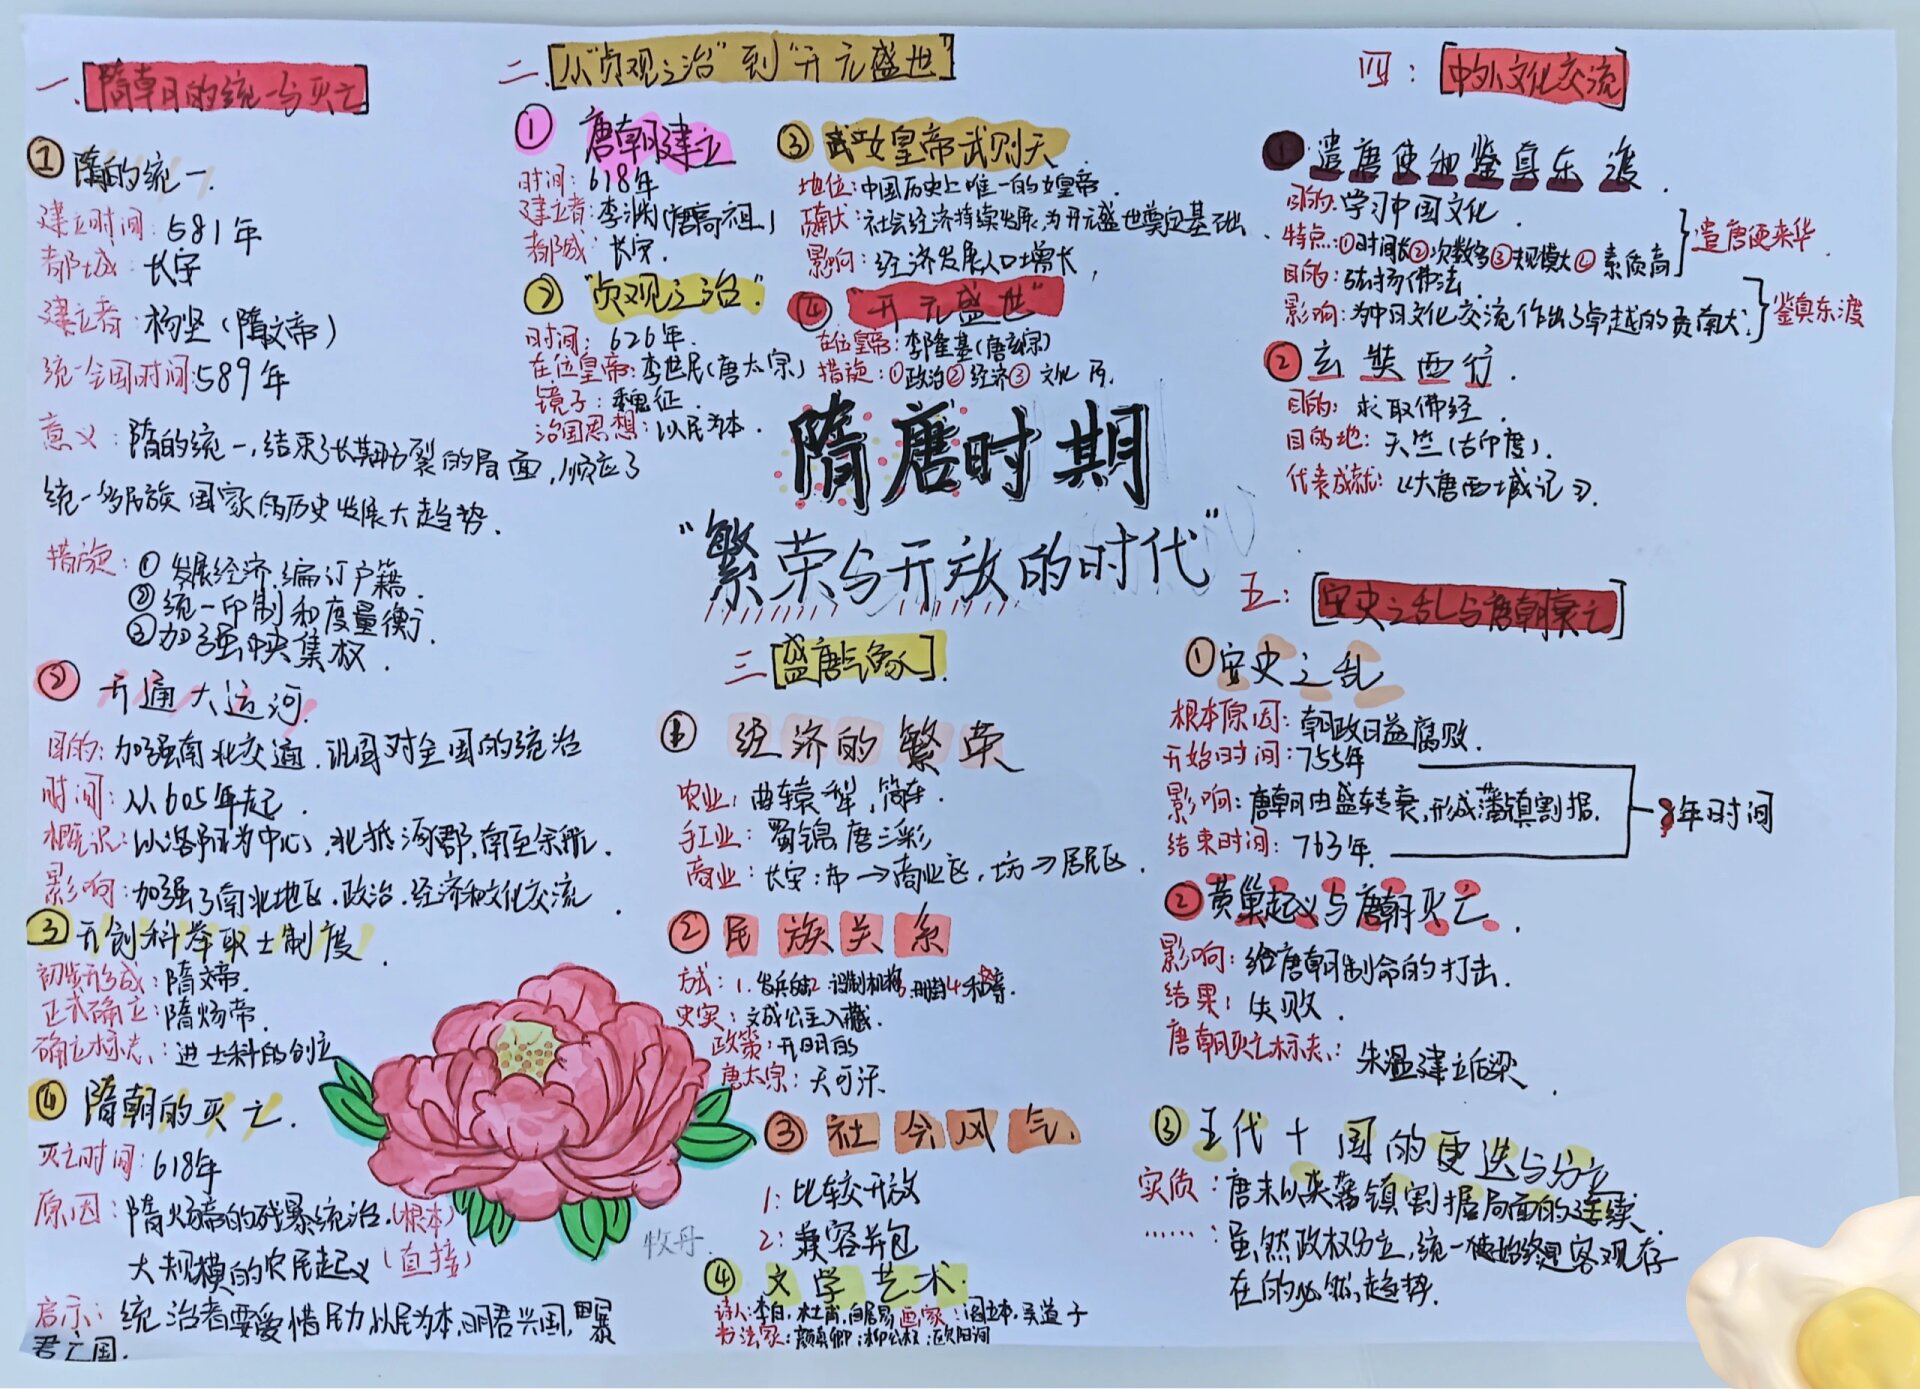 一、隋朝的统一与灭亡
① 隋的统一.
建立时间:581年
都城:长安
建立者:杨坚(隋文帝)
统一全国时间:589年
意义:隋的统一,结束了长期分裂的局面,顺应了
统一多民族国家的历史发展大趋势.
措施:①发展经济,编订户籍.
②统一币制和度量衡.
③加强中央集权.
② 开通大运河.
目的:加强南北交通.巩固对全国的统治
时间:从605年起.
概况:以洛阳为中心,北抵涿郡,南至余杭.
影响:加强了南北地区.政治.经济和文化交流.
③开创科举取士制度.
初步形成:隋文帝.
正式确立:隋炀帝.
确立标志:进士科的创立
④ 隋朝的灭亡.
灭亡时间:618年
原因:隋炀帝的残暴统治.(根本)
大规模的农民起义(直接)
启示:统治者要爱惜民力,以民为本,明君兴国,暴
君亡国.
二.从“贞观之治”到“开元盛世”
① 唐朝建立
时间:618年
建立者:李渊(唐高祖)
都城:长安.
② “贞观之治”.
时间:626年.
在位皇帝:李世民(唐太宗)
镜子:魏征.
治国思想:以民为本.
③ 女皇帝武则天
地位:中国历史上唯一的女皇帝.
贡献:社会经济持续发展,为开元盛世奠定基础.
影响:经济发展人口增长,
④ “开元盛世”
在位皇帝:李隆基(唐玄宗)
措施:①政治②经济③文化
隋唐时期
“繁荣与开放的时代”
三[盛唐气象].
① 经济的繁荣
农业:曲辕犁,筒车.
手工业:蜀锦,唐三彩
商业:长安:市→商业区,坊→居民区.
② 民族关系
方式:1.发兵 2.设制机构3.册封4.和亲.
史实:文成公主入藏.
政策:开明的
唐太宗:天可汗.
③ 社会风气.
1:比较开放
2:兼容并包
④ 文学艺术.
诗人:李白,杜甫,白居易 画家:阎立本,吴道子
书法家:颜真卿;柳公权;欧阳询
牧丹.
四:[中外文化交流]
① 遣唐使和鉴真东渡.
目的:学习中国文化
特点:①时间长②次数多③规模大④素质高
遣唐使来华
目的:弘扬佛法.
影响:为中日文化交流作出了卓越的贡献.
鉴真东渡
② 玄奘西行.
目的:求取佛经.
目的地:天竺(古印度).
代表成就:《大唐西域记》.
五:[安史之乱与唐朝衰亡]
①安史之乱
根本原因:朝政日益腐败.
开始时间:755年
影响:唐朝由盛转衰,形成藩镇割据.
结束时间:763年.
8年时间
②黄巢起义与唐朝灭亡.
影响:给唐朝制命的打击.
结果:失败.
唐朝灭亡标志:朱温建立后梁.
③ 五代十国的更迭与分立
实质:唐末以来藩镇割据局面的延续.
……:虽然政权分立,统一使始终是客观存
在的必然趋势.